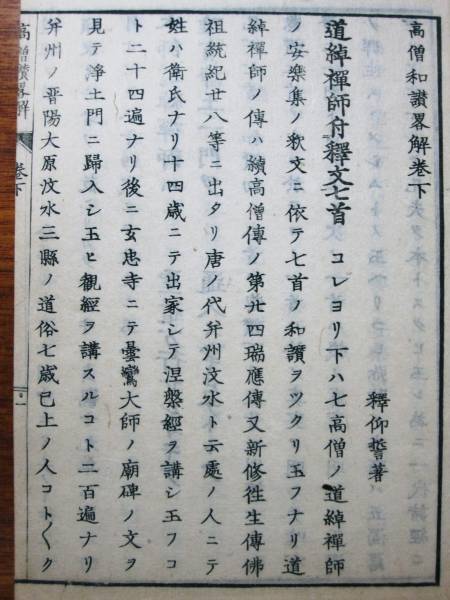 高僧和讃畧解巻下
釋仰誓著
道綽禪師付釋文七首 コレヨリ下ハ七高僧ノ道綽禪師
ノ安樂集ノ釈文ニ依テ七首ノ和讃ヲツクリ玉フナリ道
綽禪師ノ傳ハ續高僧傳ノ第廿四瑞應傳又新修徃生傳佛
祖統紀廿八等ニ出タリ唐ノ代弁州汶水ト云處ノ人ニテ
姓ハ衛氏ナリ十四歳ニテ出家シテ涅槃經ヲ講シ玉フコ
ト二十四遍ナリ後ニ玄忠寺ニテ曇鸞大師ノ廟碑ノ文ヲ
見テ淨土門ニ歸入シ玉ヒ観經ヲ講スルコト二百遍ナリ
弁州ノ晋陽大原汶水三縣ノ道俗七歳已上ノ人コト〱ク
高僧讃畧解 巻下